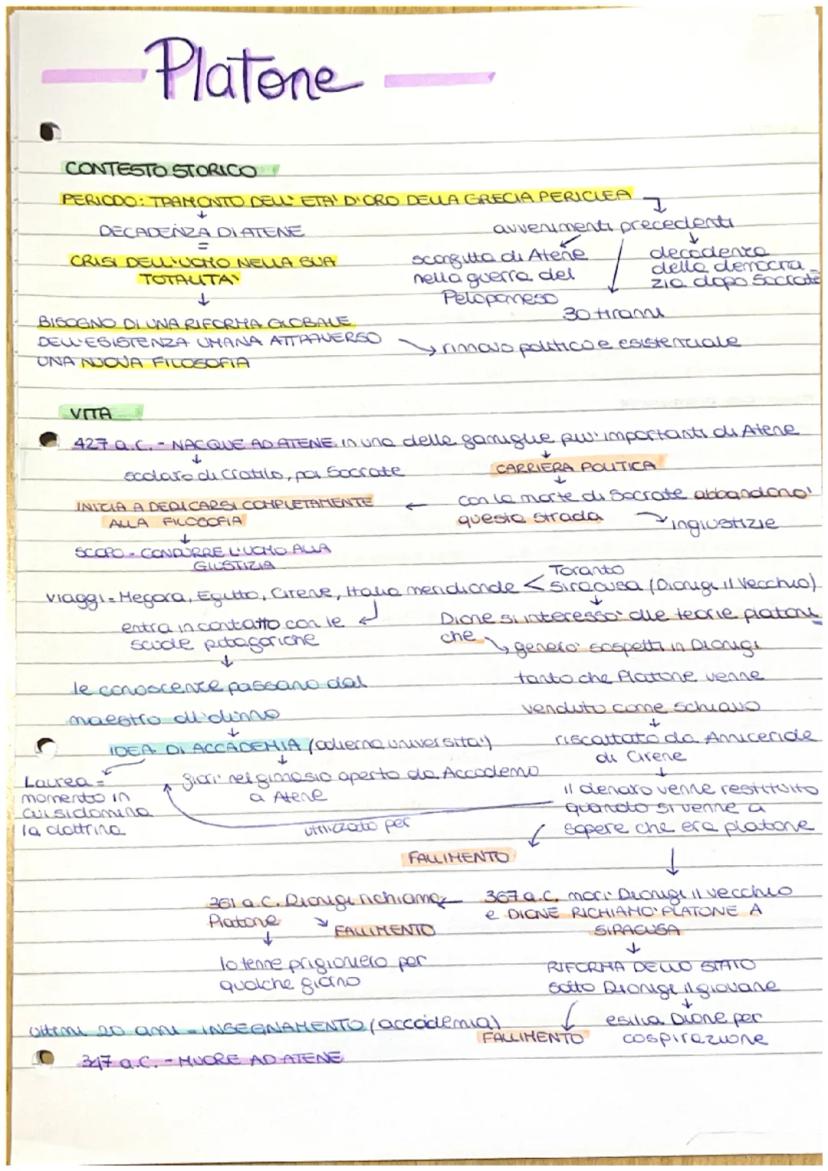 Platone
CONTESTO STORICO
PERIODO: TRAMONTO DELL' ETA' D'ORO DELLA GRECIA PERICLEA
DECADENZA DI ATENE
=
CRISI DELL'UOMO NELLA SUA
TOTALITA'
BISOGNO DI UNA RIFORMA GLOBALE
DELL'ESISTENZA UMANA ATTRAVERSO
UNA NUOVA FILOSOFIA
avvenimenti precedenti
sconfitta di Atene
nella guerra del
Peloponneso
30 tiranni
decadenza
della democra
zia dopo Socrate
rinnovo politico e esistenziale
VITA
427 a.C. - NACQUE AD ATENE in una delle famiglie piu' importanti di Atene
scolaro di Cratilo, poi Socrate
CARRIERA POLITICA
con la morte di Socrate abbandono'
questa strada
ingiustizie
INIZIA A DEDICARSI COMPLETAMENTE
ALLA FILOSOFIA
SCOPO - CONDURRE L'UOMO ALLA
GIUSTIZIA
viaggi = Megara, Egitto, Cirene, Italia meridionale <
Taranto
Siracusa (Dionigi il Vecchio)
entra in contatto con le
scuole pitagoriche
le conoscenze passano dal
maestro all'alunno
Dione si interesso' alle teorie platoni
che
genero' sospetti in Dionigi
tanto che Platone venne
venduto come schiavo
riscattato da Anniceride
di Cirene
il denaro venne restituito
quando si venne a
sapere che era platone
IDEA DI ACCADEMIA (odierna universita')
Laurea =
momento in
cui si domina
la dottrina
giardini nel ginnasio aperto da Accademo
a Atene
utilizzato per
FALLIMENTO
367 a.C. mori' Dionigi il vecchio
e DIONE RICHIAMO' PLATONE A
SIRACUSA
361 a.C. Dionigi richiama
Platone
FALLIMENTO
lo tenne prigioniero per
qualche giorno
RIFORMA DELLO STATO
sotto Dionigi il giovane
esilia Dione per
cospirazione
FALLIMENTO
ultimi 20 anni = INSEGNAMENTO (accademia)
347 a.C. - MUORE AD ATENE